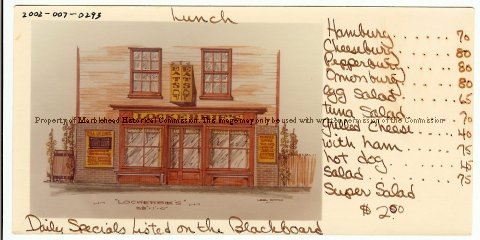 2002-007-0293
Lunch
EATS
EATS
Property of Marblehead Historical Commission. This image may only be used with written permission of the Commission
"LOCKERBIE'S"
Daily Specials Listed on the Blackboard
Hamburg ..... 70
Cheeseburg .... 80
Pepperburg .... 80
Onionburg .... 80
egg Salad .... 65
tuna Salad .... 70
Grilled Cheese ... 40
with ham .... 75
hot dog .... 45
Salad ..... 75
Super Salad
$2.00